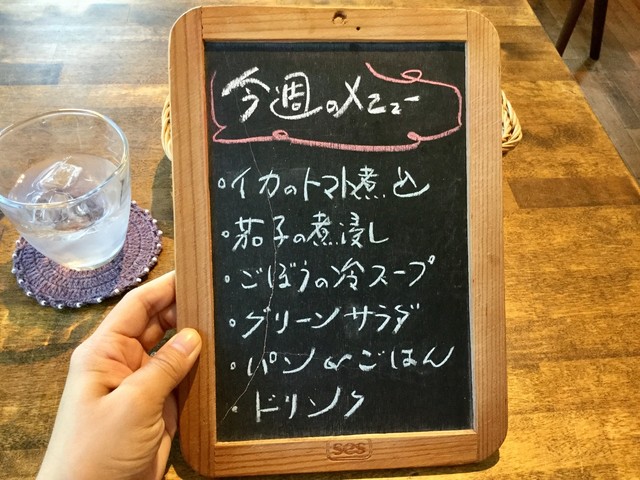 今週のメニュー
・イカのトマト煮込
・茄子の煮浸し
・ごぼうの冷スープ
・グリーンサラダ
・パン or ごはん
・ドリンク
ses